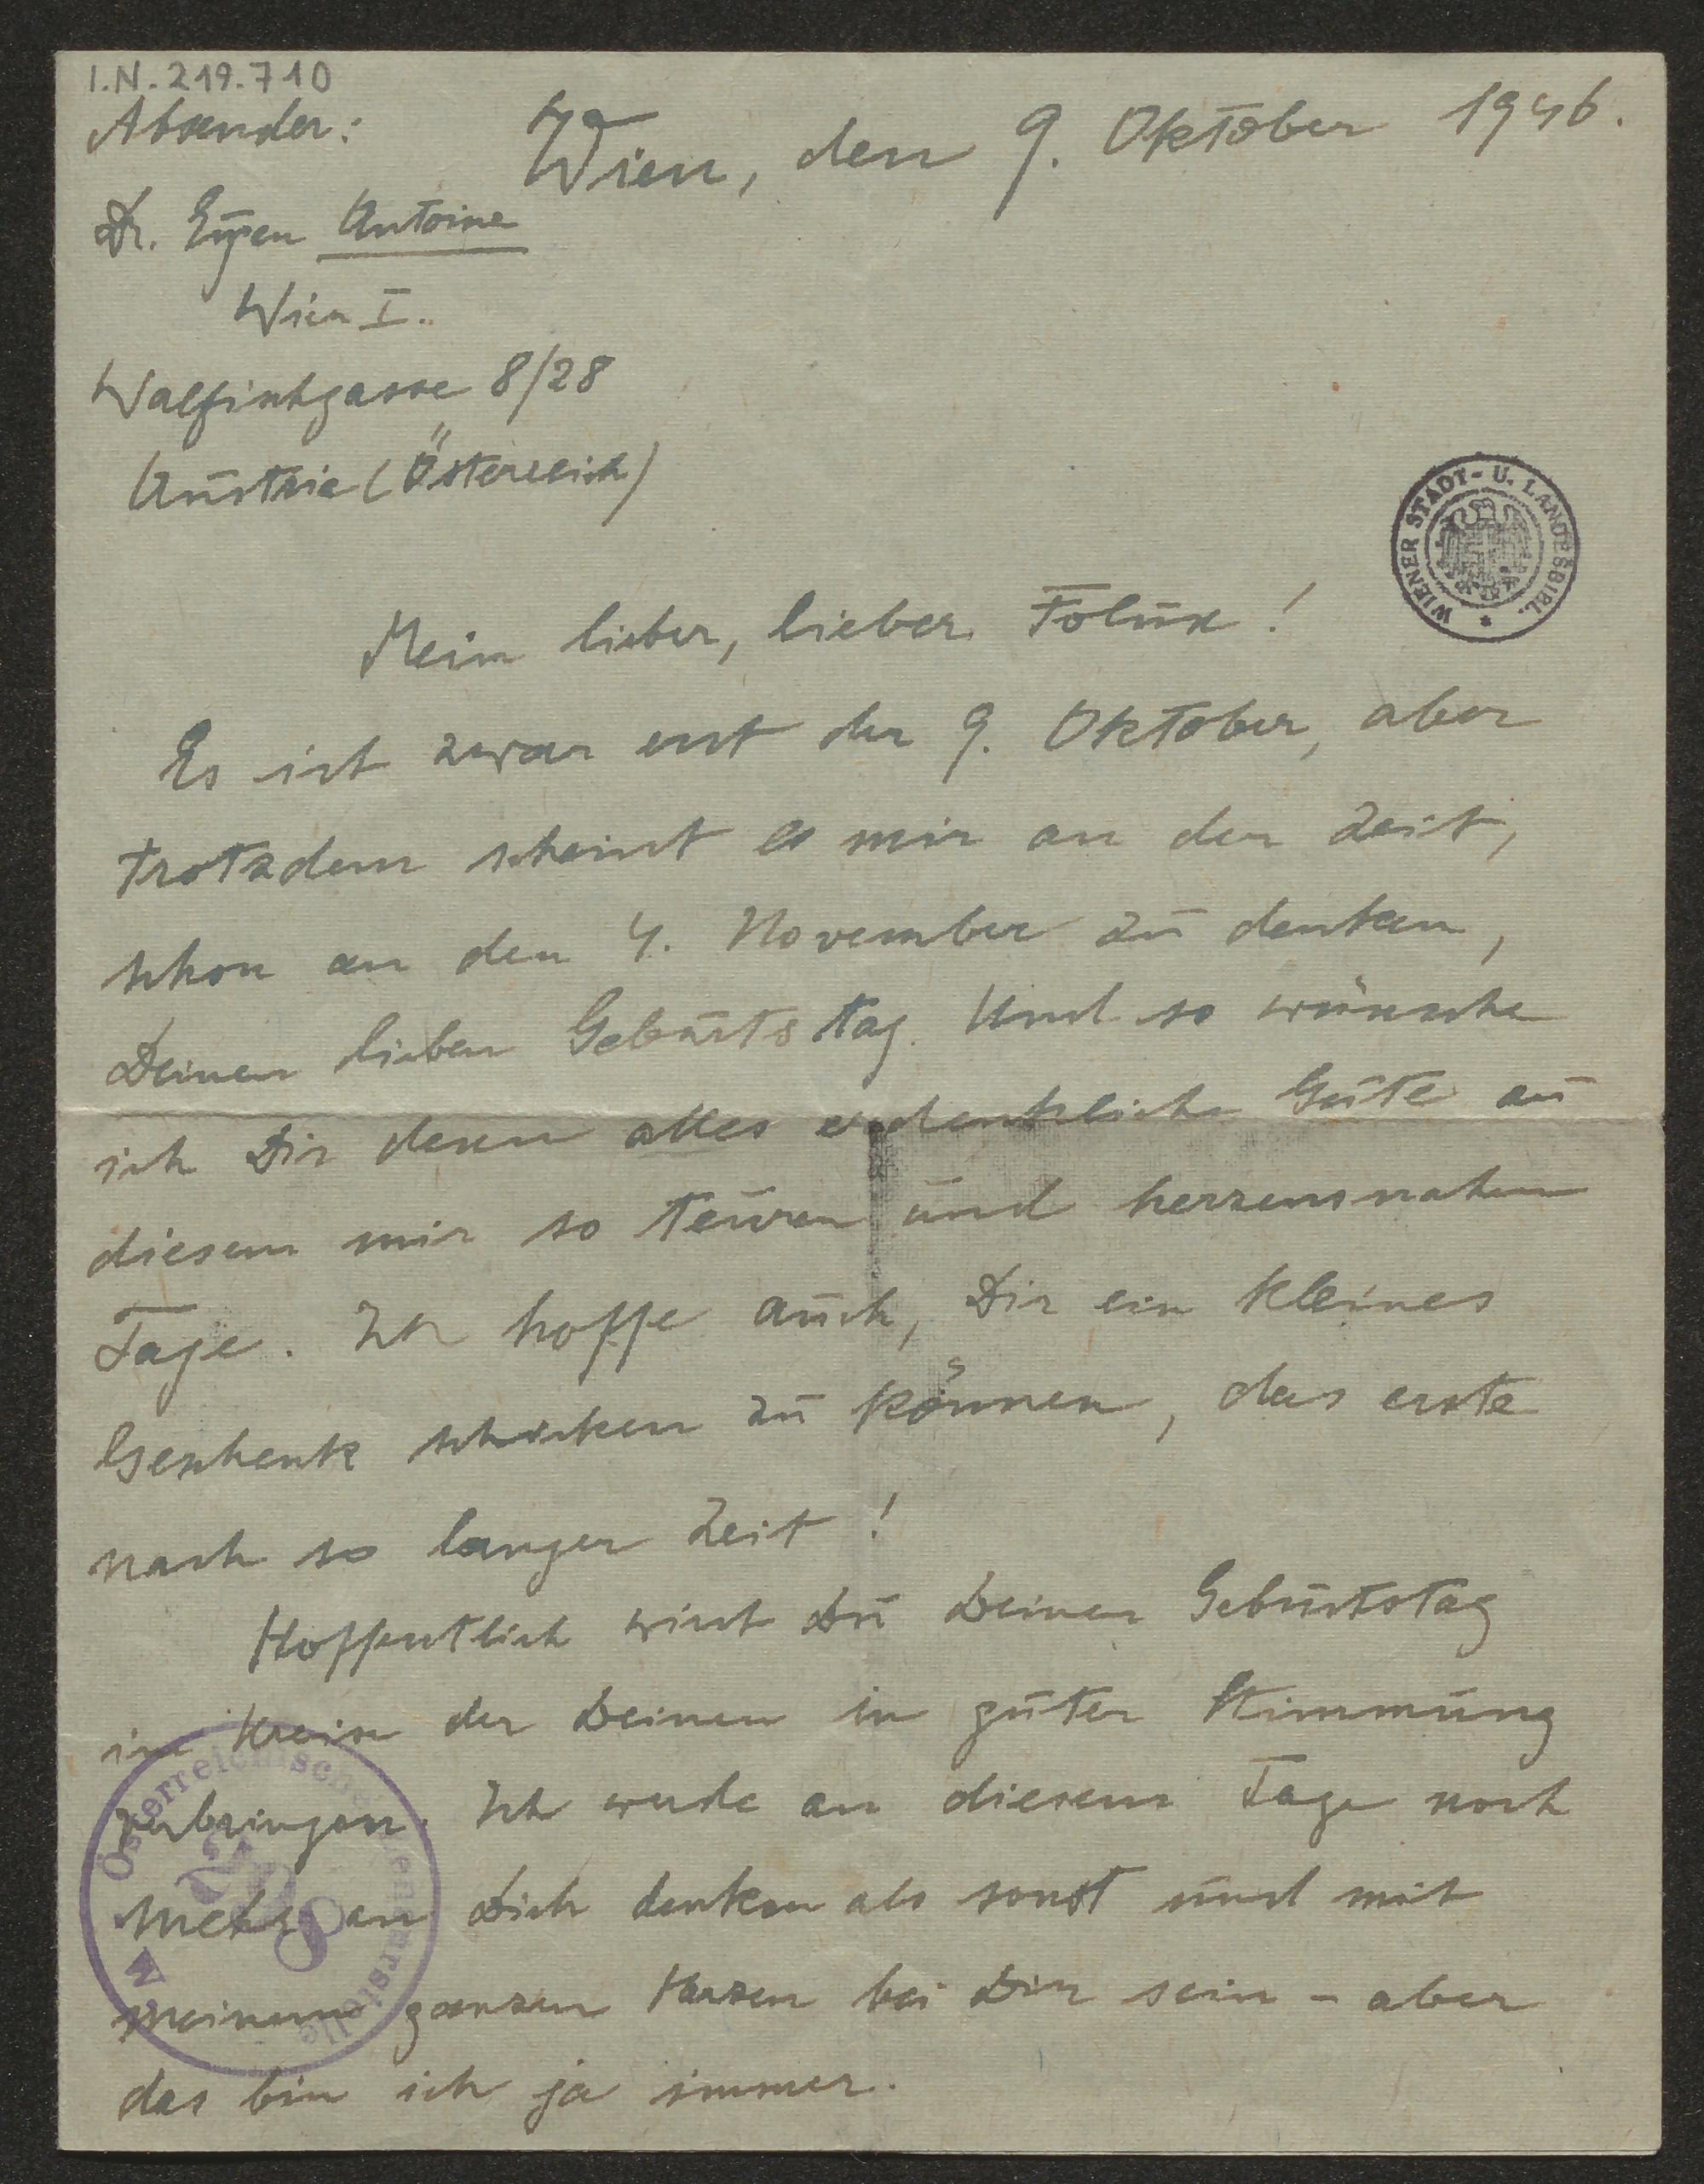 I.N. 219.710
Absender:
Wien, den 9. Oktober 1946.
Dr. Eugen Antoine
Wien I.
Walfischgasse 8/28
Austria (Österreich)
WIENER STADT- U. LANDESBIBL.
Mein lieber, lieber
Es ist zwar erst der 9. Oktober, aber
trotzdem scheint es mir an der Zeit,
schon an den 4. November zu denken,
Deinen lieben Geburtstag. Und so wünsche
ich Dir denn alles erdenkliche Gute zu
diesem mir so teuren und herzensnahen
Tage. Ich hoffe auch, Dir ein kleines
Geschenk schicken zu können, das erste
nach so langer Zeit!
Hoffentlich wirst Du Deinen Geburtstag
im Kreise der Deinen in guter Stimmung
verbringen. Ich werde an diesem Tage noch
mehr an Dich denken als sonst und mit
meinem ganzen Herzen bei Dir sein - aber
das bin ich ja immer.
Österreichische Zensurstelle